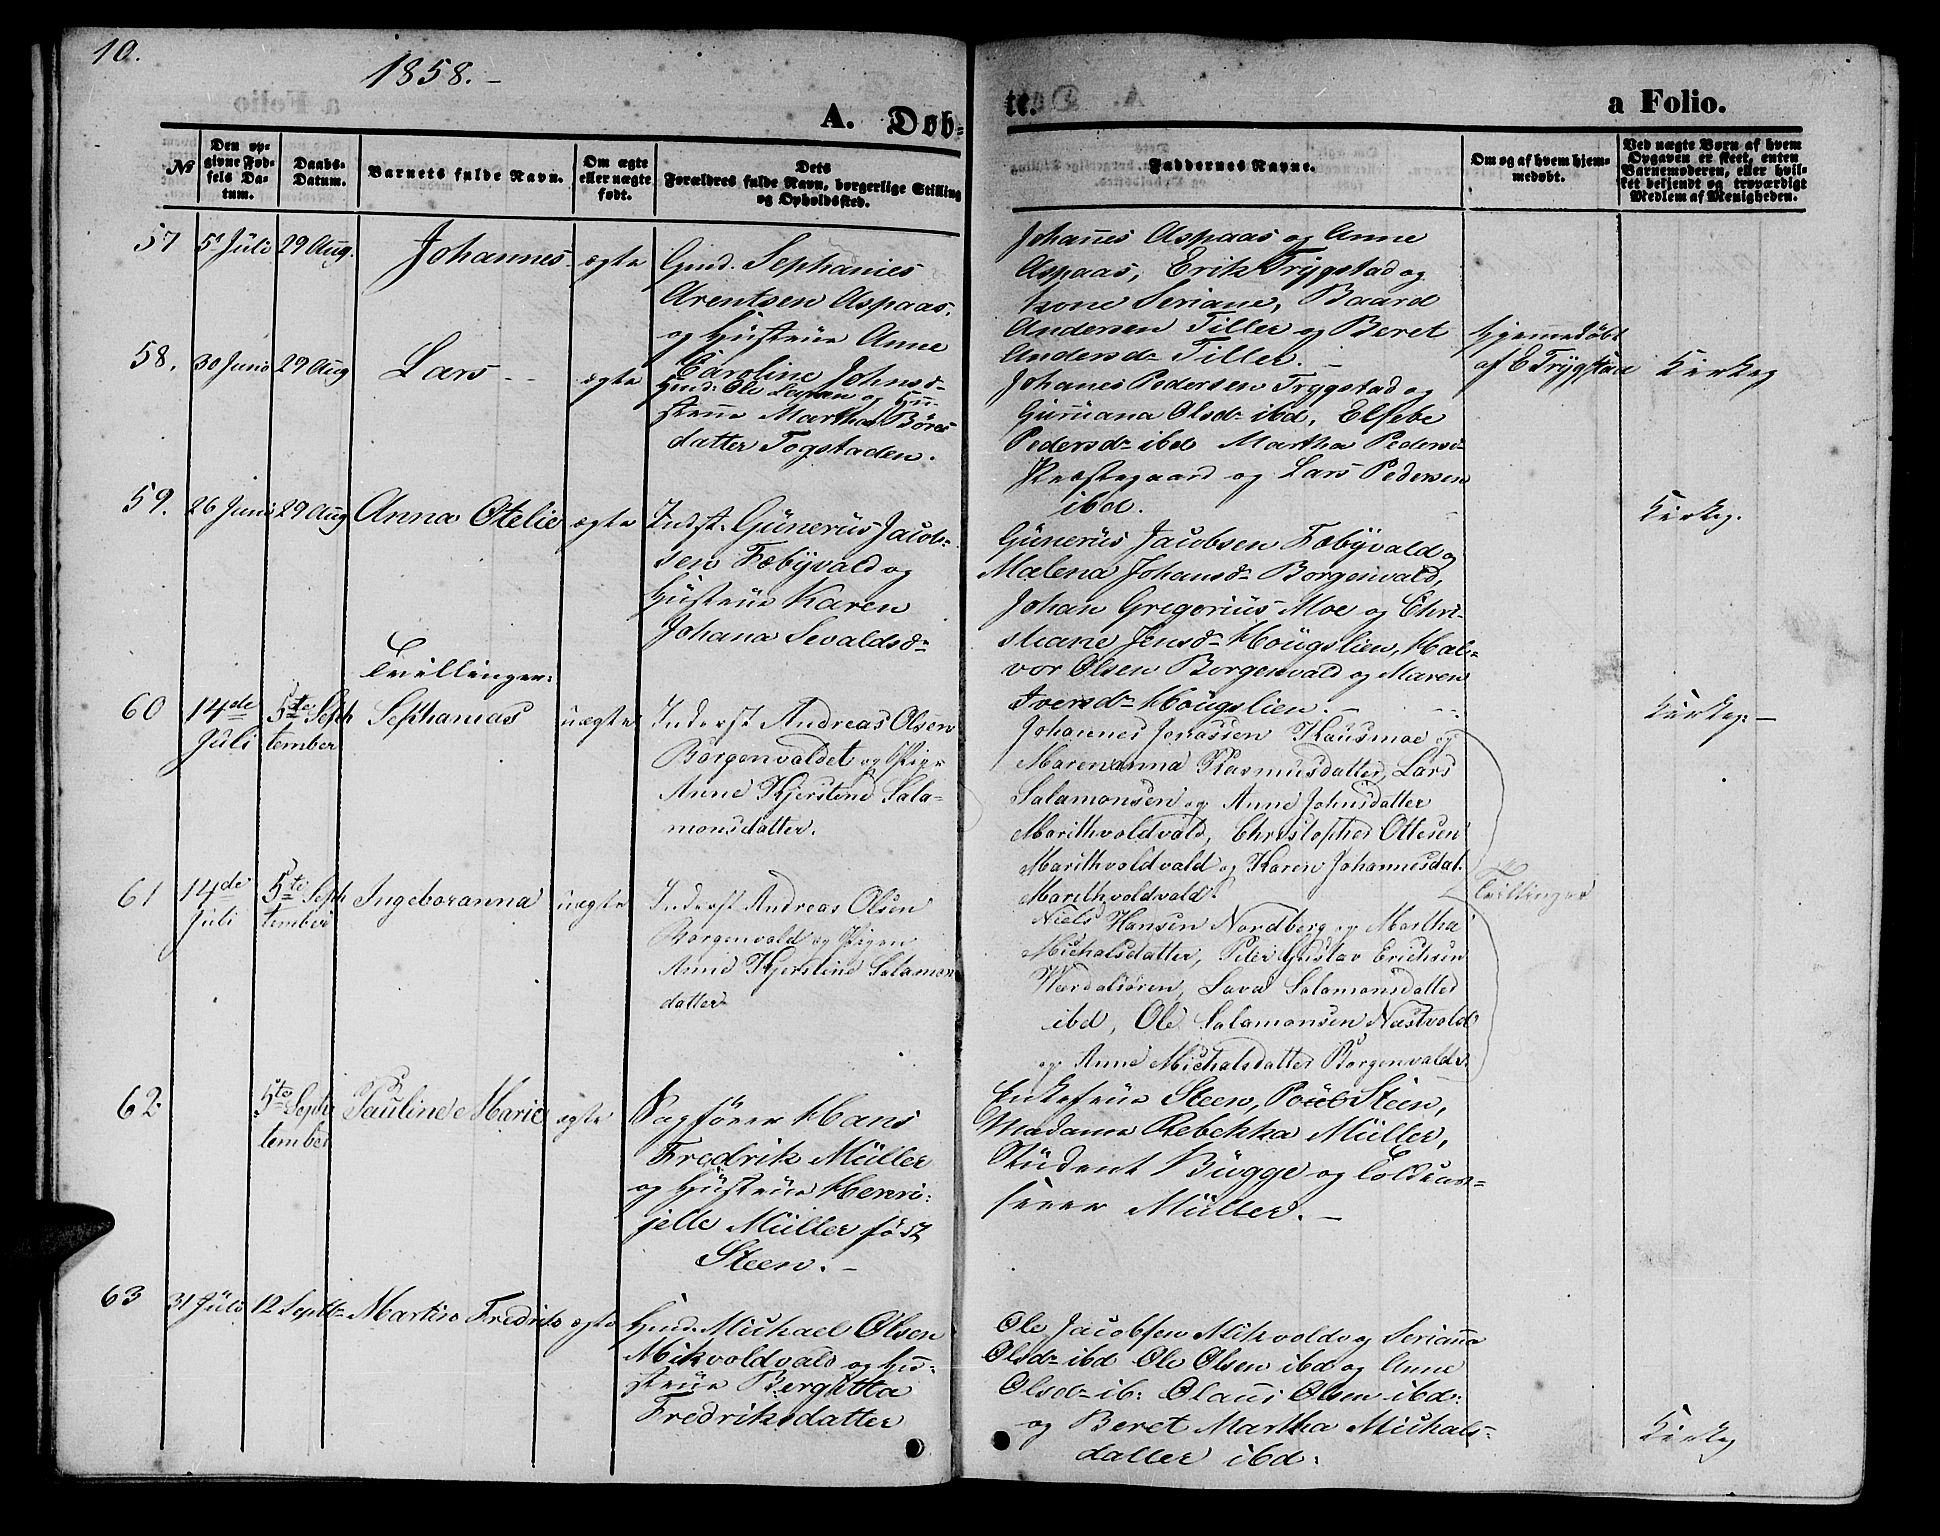 10.
1858.-
A. Døb-
te.
a Folio.
№
Den op-
givne Fød-
sels Da-
tum.
Daabs-
Datum.
Barnets fulde Navn.
Om ægte
eller uægte
født.
Dets
Forældres fulde Navn, borgerlige Stilling
og Opholdssted.
Faddernes Navne.
Om og af hvem hjem-
medøbt.
Ved uægte Børn af hvem
Opgaven er skeet, enten
Barnemoderen, eller hvil-
ket bekjendt og troværdigt
Medlem af Menigheden.
57 5t Juli 29 Aug. Johannes ægte Gmd. Sephanies
Arentsen Aspaas,
og Hustrue Anne
Caroline Johnsd-
Johannes Aspaas og Anne
Aspaas, Erik Trygstad og
kone Seriane, Baard
Andersen Tiller og Beret
Andersd- Tiller.-
58. 30 Juni 29 Aug Lars - - ægte
Hmd. Ole og Hu-
strue Martha Børes
datter Togstaden.
Johanes Pedersen Trygstad og
Gunuana Olsd- ibd, Elsebe
Pedersd- ibd Martha Pedersd-
Præstegaard og Lars Pedersen
ibd.
Hjemmedøbt
af E Trygstad
Kirkeg
59. 26 Juni 29 Aug Anna Otelie ægte Indst. Günerüs Jacob-
sen Fæbyvald og
Hustrue Karen
Johana Sevaldsd-
Günerüs Jacobsen Fæbyvald og
Malena Johansd- Borgenvald,
Johan Gregorius Moe og Chri-
stiane Jensd- Hougslien, Hal-
vor Olsen Borgenvald og Maren
Iversd- Hougslien.-
Kirkeg.
Tvillinger:
60 14de Juli 5te Sep-
tember Sephanias uægte Inderst Andreas Olsen
Borgenvaldet og Pige
Anne Kjerstine Sala-
monsdatter.
Johannes Jonassen Kausmoe og
Marenanna Rasmusdatter, Lars
Salamonsen og Anne Johnsdatter
Marithvoldvald, Christopher Ottesen
Marithvoldvald og Karen Johannesdat.
Marithvoldvald.
Kirkeg:-
61 14de Juli 5te Sep-
tember Ingeboranna uægte Inderst Andreas Olsen
Borgenvald og Pigen
Anne Kjerstine Salamon
datter
Niels Hansen Nordberg og Martha
Michalsdatter, Peter Gustav Erichsen
Værdalsøren, Lava Salamonsdatter
ibd, Ole Salamonsen Næstvold
og Anne Michalsdatter Borgenvald.
Tvillinger
62 5te Sep-
tember Pauline Marie ægte Sagfører Hans
Fredrik Müller
og Hüstrüe Henri-
jette Müller født
Steen.-
Enkefrue Steen, Poul Steen,
Madame Rebekka Müller,
Stüdent Bügge og Toldcas-
serer Müller.-
63 31 Juli 12 Septb- Martin Fredrik ægte Hmd. Michael Olsen
Mikvoldvald og Hu-
strue Bergitta
Fredriksdatter
Ole Jacobsen Mikvold og Serianna
Olsd- ibd Ole Olsen ibd og Anne
Olsd- ib: Olaus Olsen ibd:
og Beret Martha Michals-
datter ibd:
Kirkeg